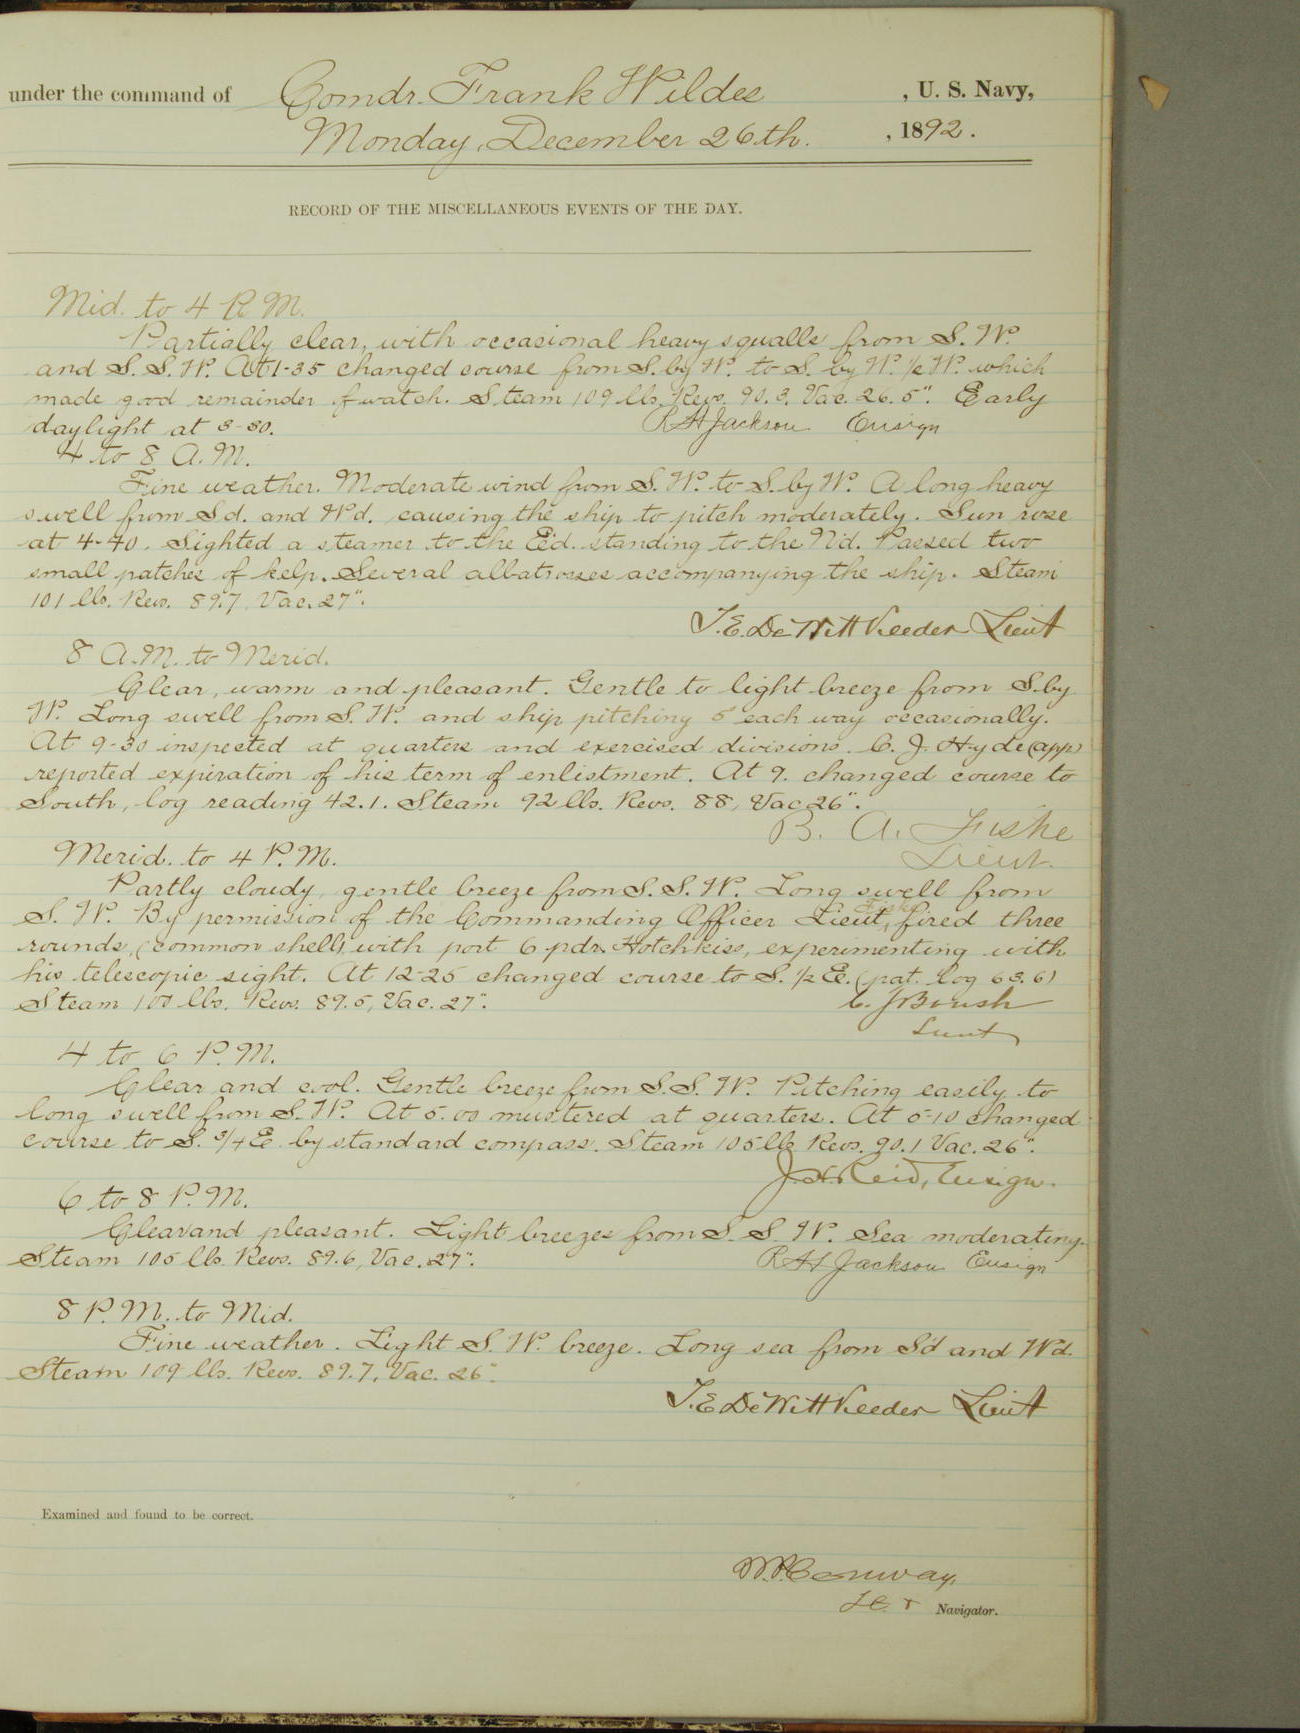 under the command of Comdr. Frank Wildes, U. S. Navy,
Monday, December 26th. , 1892.
RECORD OF THE MISCELLANEOUS EVENTS OF THE DAY.
Mid. to 4 P. M.
Partially clear, with occasional heavy squalls from S. W.
and S. S. W. At 1-35 changed course from S. by W. to S. by W. 1/2 W. which
made good remainder of watch. Steam 109 lbs. Revs. 90.3, Vac. 26.5". Early
daylight at 3-30. R H Jackson Ensign
4 to 8 A. M.
Fine weather. Moderate wind from S. W. to S. by W. A long heavy
swell from Sd. and Wd. causing the ship to pitch moderately. Sun rose
at 4-40. Sighted a steamer to the E'd. standing to the N'd. Passed two
small patches of kelp. Several albatrosses accompanying the ship. Steam
101 lbs. Revs. 89.7, Vac. 27".
T. E. DeWitt Veeder Lieut
8 A. M. to Merid.
Clear, warm and pleasant. Gentle to light breeze from S. by
W. Long swell from S. W. and ship pitching 5° each way occasionally.
At 9-30 inspected at quarters and exercised divisions. C. J. Hyde (app)
reported expiration of his term of enlistment. At 9. changed course to
South, log reading 42.1. Steam 92 lbs. Revs. 88, Vac 26".
B. A. Fiske
Lieut.
Merid. to 4 P. M.
Partly cloudy, gentle breeze from S. S. W. Long swell from
S. W. By permission of the Commanding Officer Lieut, Fiske fired three
rounds, (common shell) with port 6 pdr. Hotchkiss, experimenting with
his telescopic sight. At 12-25 changed course to S. 1/2 E. (pat. log 63.6)
Steam 100 lbs. Revs. 89.5, Vac. 27". C. J Boush
Lieut
4 to 6 P. M.
Clear and cool. Gentle breeze from S. S. W. Pitching easily to
long swell from S. W. At 5.00 mustered at quarters. At 5-10 changed
course to S. 3/4 E. by standard compass. Steam 105 lbs Revs. 90.1 Vac. 26".
J. H. Reid, Ensign.
6 to 8 P. M.
Clear and pleasant. Light breezes from S. S. W. Sea moderating.
Steam 105 lbs. Revs. 89.6, Vac. 27". R H Jackson Ensign
8 P. M. to Mid.
Fine weather. Light S. W. breeze. Long sea from S'd and W'd.
Steam 109 lbs. Revs. 89.7, Vac. 26".
T. E. DeWitt Veeder Lieut
Examined and found to be correct.
W. P. Conway,
Lt. Navigator.